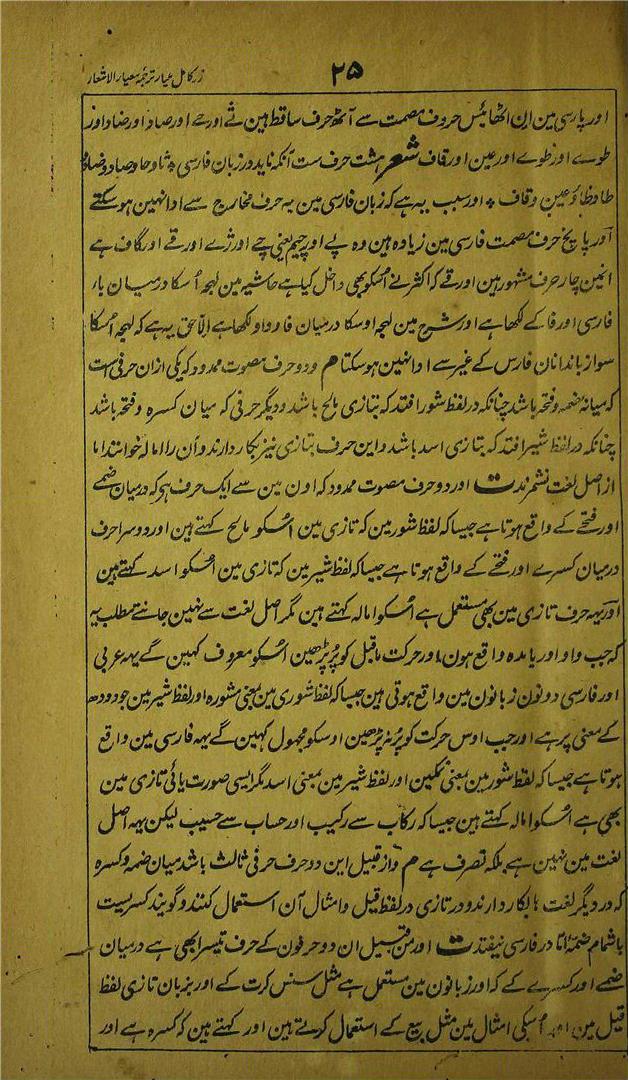 ۲۵
زر کامل عیار ترجمہ معیار الاشعار
اور پارسی مین این اٹھائیس حروف مصمت سے آٹھ حرف ساقط ہین ثے اور حے اور صاد اور ضاد اور
طوے اور ظوے اور عین اور قاف شعر ہشت حرف ست آنکہ ناید در زبان فارسی ٭ ثا و حا و صاد و ضاد
طا و ظا و عین و قاف ٭ اور سبب یہ ہے کہ زبان فارسی مین یہ حرف مخارج سے ادا نہین ہو سکتے
اور پانچ حرف مصمت فارسی مین زیادہ ہین وہ پے اور چیم یعنی چے اور ژے اور ڤے اور گاف ہے
انمین چار حرف مشہور ہین اور ڤے کو اکثر نے اسکو بھی داخل کیا ہے حاشیہ مین لہجہ اُسکا درمیان باء
فارسی اور فا کے لکھا ہے اور شرح مین لہجہ اوسکا درمیان فا و واو لکھا ہے الا حق یہ ہے کہ لہجہ اُسکا
سوا زباندانان فارس کے غیر سے ادا نہین ہو سکتا م و دو حرف مصوت ممدود کہ یکی ازان حرفی است
کہ میانہ ضمہ و فتحہ باشد چنانکہ در لفظ شور افتد کہ بتازی مالح باشد و دیگر حرفی کہ میان کسرہ و فتحہ باشد
چنانکہ در لفظ شیر افتد کہ بتازی اسد باشد و این حرف بتازی نیز بکار دارند و آن را امالہ خوانند اما
از اصل لغت نشمرند ت اور دو حرف مصوت ممدود کہ اون مین سے ایک حرف ہے کہ درمیان ضمے
اور فتحے کے واقع ہوتا ہے جیسا کہ لفظ شور مین کہ تازی مین اُسکو مالح کہتے ہین اور دوسرا حرف
درمیان کسرے اور فتحے کے واقع ہوتا ہے جیسا کہ لفظ شیر مین کہ تازی مین اُسکو اسد کہتے ہین
اور یہہ حرف تازی مین بھی مستعمل ہے اُسکو امالہ کہتے ہین مگر اصل لغت سے نہین جانتے مطلب یہ
کہ جب واو اور یا مدہ واقع ہون اور حرکت ماقبل کو پُر پڑھین اُسکو معروف کہین گے یہہ عربی
اور فارسی دونون زبانون مین واقع ہوتی ہین جیسا کہ لفظ شوری مین بمعنی مشورہ اور لفظ شیر مین جو دودھ
کے معنی پر ہے اور جب اوس حرکت کو پُر نہ پڑھین اوسکو مجہول کہین گے یہہ فارسی مین واقع
ہوتا ہے جیسا کہ لفظ شور مین بمعنی نمکین اور لفظ شیر مین بمعنی اسد مگر ایسی صورت یائی تازی مین
بھی ہے اُسکو امالہ کہتے ہین جیسا کہ رکاب سے رکیب اور حساب سے حسیب لیکن یہہ اصل
لغت مین نہین ہے بلکہ تصرف ہے م و از قبیل این دو حرف حرفی ثالث باشد میان ضمہ و کسرہ
کہ در دیگر لغت ہا بکار دارند و در تازی در لفظ قیل و امثال آن استعمال کنند و گویند کسریست
باشمام ضمہ اما در فارسی نیفتد ت اور من قبیل ان دو حرفون کے حرف تیسرا بھی ہے درمیان
ضمے اور کسرے کے کہ اور زبانون مین مستعمل ہے مثل سنس کرت کے اور بزبان تازی لفظ
قیل مین اور اُسکی امثال مین مثل بیع کے استعمال کرتے ہین اور کہتے ہین کہ کسرہ ہے اور